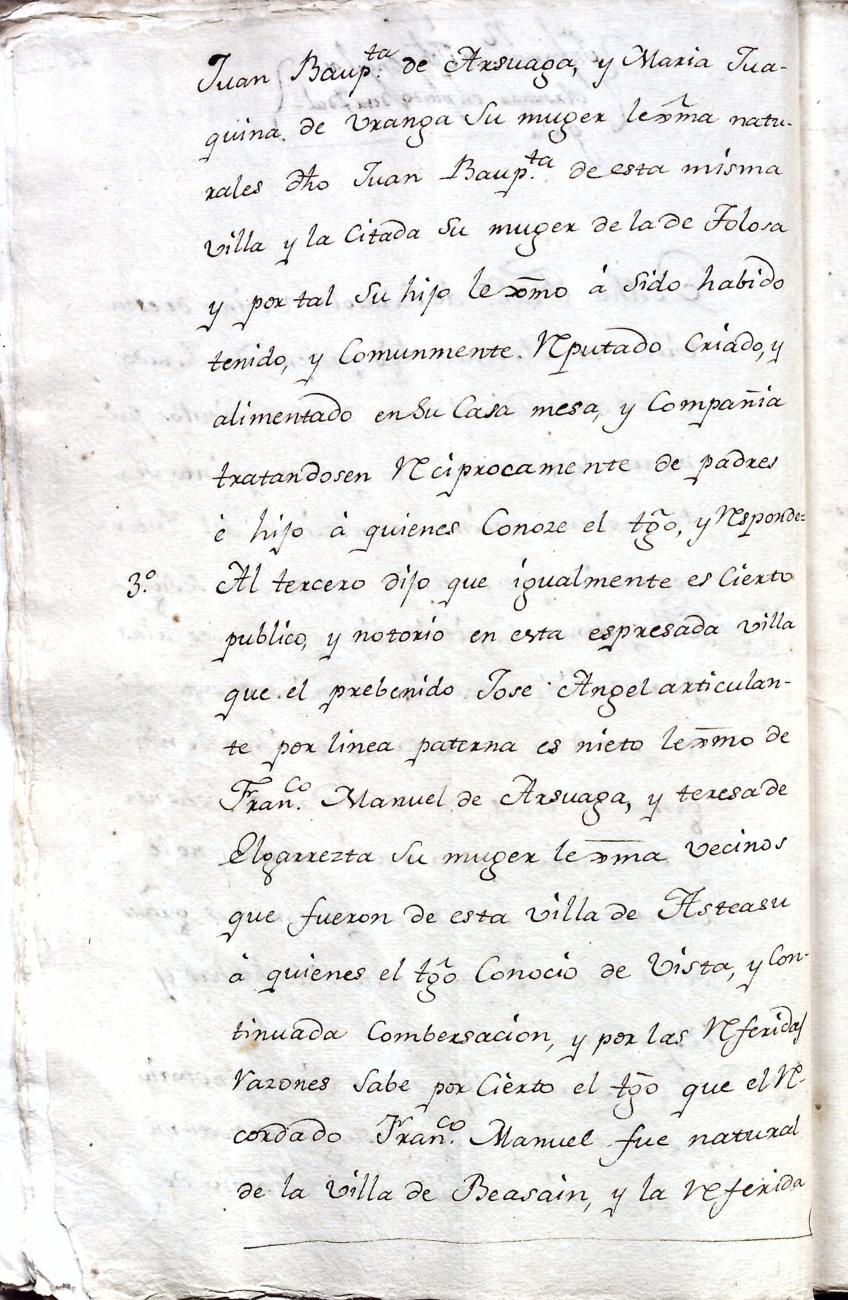 Juan Baup.ta de Arsuaga, y Maria Jua-
quina de Vranga Su muger lexma natu-
rales dho Juan Baup.ta de esta misma
villa y la Citada Su muger de la de Tolosa
y por tal Su hijo lexmo á Sido habido
tenido, y Comunmente Reputado Criado, y
alimentado en Su Casa mesa, y Compañia
tratandosen Reciprocamente de padres
é hijo á quienes Conoze el tgo, y Responde=
3.º Al tercero dijo que igualmente es Cierto
publico, y notorio en esta espresada villa
que el prebenido Jose Angel articulan-
te por linea paterna es nieto lexmo de
Fran.co Manuel de Arsuaga, y teresa de
Elgarrezta Su muger lexma vecinos
que fueron de esta villa de Asteasu
á quienes el tgo Conocio de Vista, y Con-
tinuada Combersacion, y por las Referidas
Razones Sabe por Cierto el tgo que el Re-
cordado Fran.co Manuel fue natural
de la villa de Beasain, y la Referida